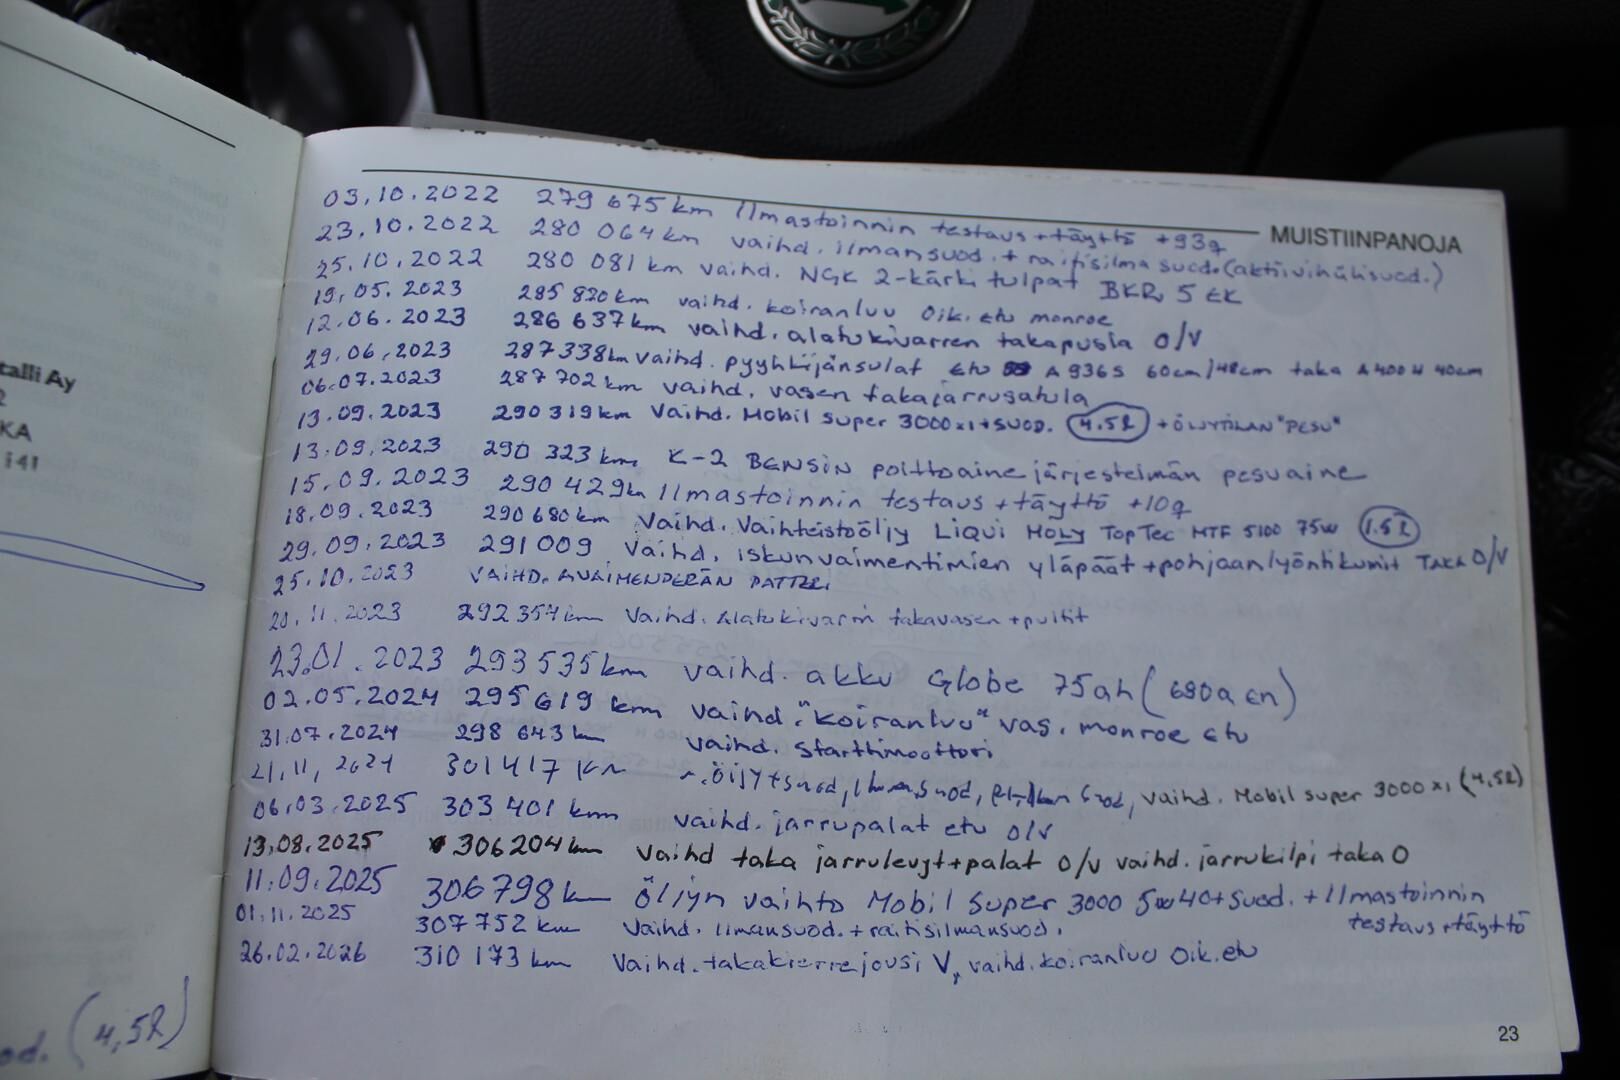 MUISTIINPANOJA
03.10.2022 279 675 km Ilmastoinnin testaus + täyttö +93g
23.10.2022 280 064 km vaihd. ilmansuod. + raitisilma suod. (aktiivihiilisuod.)
25.10.2022 280 081 km vaihd. NGK 2-kärki tulpat BKR 5 EK
19.05.2023 285 820 km vaihd. koiranluu oik. etu monroe
12.06.2023 286 637 km vaihd. alatukivarren takapusla O/V
29.06.2023 287 338 km vaihd. pyyhkijänsulat etu A 936 S 60cm/48cm taka A 400 H 40cm
06.07.2023 287 702 km vaihd. vasen takajarrusatula
13.09.2023 290 319 km Vaihd. Mobil super 3000 x1 + SUOD. (4.5l) + ÖLJYTILAN "PESU"
13.09.2023 290 323 km K-2 BENSIN polttoainejärjestelmän pesuaine
15.09.2023 290 429 km Ilmastoinnin testaus + täyttö +10g
18.09.2023 290 680 km Vaihd. Vaihteistoöljy LIQUI MOLY TopTec MTF 5100 75W (1.5l)
29.09.2023 291 009 Vaihd. iskunvaimentimien yläpäät + pohjaanlyöntikumit TAKA O/V
25.10.2023 VAIHD. AVAIMENPERÄN PATTERI
20.11.2023 292 354 km Vaihd. alatukivarin takavasen + pultit
23.01.2023 293 535 km vaihd. akku Globe 75ah (680a en)
02.05.2024 295 619 km vaihd. "koiranluu" vas. monroe etu
31.07.2024 298 643 km vaihd. starttimoottori
21.11.2024 301 417 km öljy + suod, suod, suod, vaihd. Mobil super 3000 x1 (4,5l)
06.03.2025 303 401 km vaihd. jarrupalat etu O/V
13.08.2025 306 204 km Vaihd taka jarrulevyt + palat O/V vaihd. jarrukilpi taka O
11.09.2025 306 798 km Öljyn vaihto Mobil Super 3000 5w40 + Suod. + Ilmastoinnin
testaus + täyttö
01.11.2025 307 752 km Vaihd. ilmansuod. + raitisilmansuod.
26.02.2026 310 173 km Vaihd. takakierrejousi V, vaihd. koiranluu oik. etu
23
talli Ay
2
KA
i 41
od. (4,5l)